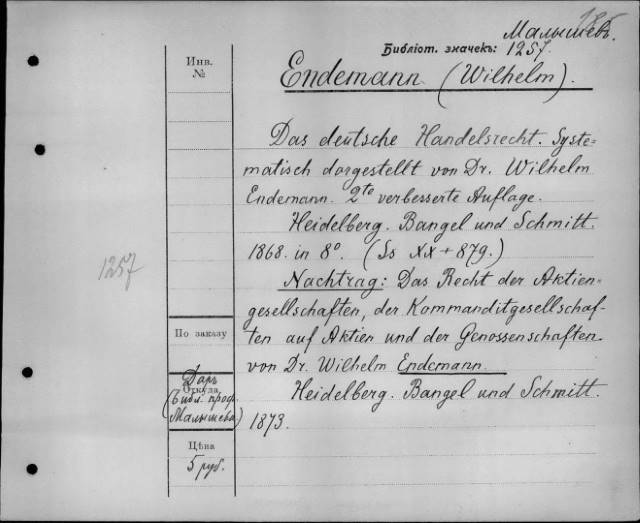 Малышевъ.
Библіот. значекъ: 1257.
Инв.
№
Endemann (Wilhelm).
Das deutsche Handelsrecht. Syste=
matisch dargestellt von Dr. Wilhelm
Endemann. 2te verbesserte Auflage.
Heidelberg. Bangel und Schmitt.
1868. in 8°. (Ss XX + 879.)
1257
Nachtrag: Das Recht der Aktien-
gesellschaften, der Kommanditgesellschaf-
ten auf Aktien und der Genossenschaften
von Dr. Wilhelm Endemann.
Heidelberg. Bangel und Schmitt.
1873.
По заказу
Даръ
Откуда
(Библ. проф.
Малышева)
Цѣна
5 руб.